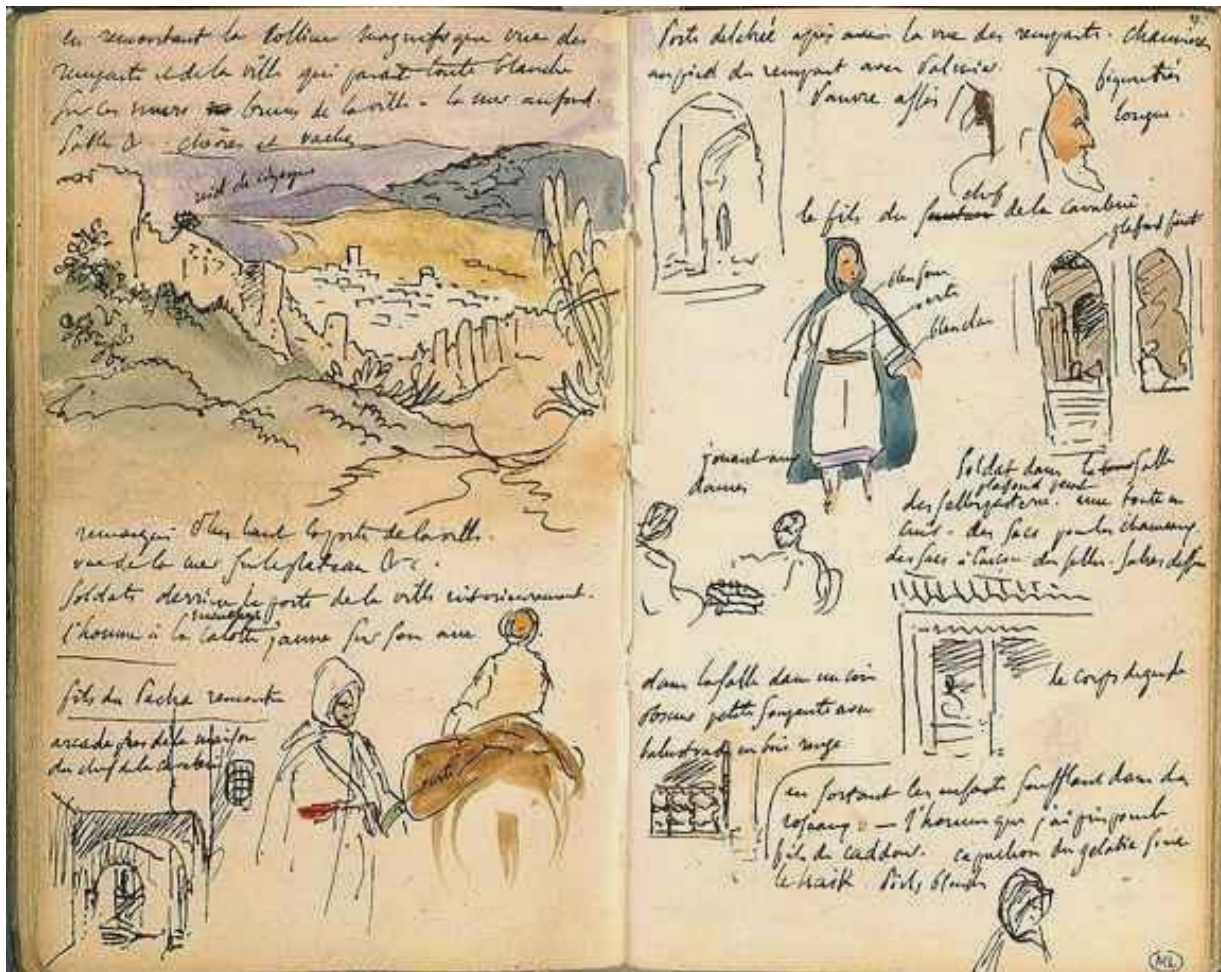 en remontant la colline magnifique vue des
remparts et de la ville qui parait toute blanche
sur les murs bruns de la ville - la mer au fond.
chèvres et vaches
nid de cigogne
remarqué plus haut la porte de la ville.
vue de la mer sur le plateau
Soldats derrière la porte de la ville intérieurement.
l'homme à la calotte jaune sur son âne
fils du Pacha rencontré
arcade près de la maison
du chef de la cavalerie
verte
Porte délabrée après avoir la vue des remparts. chaumières
au pied du rempart avec Palmier.
Pauvre assis
figure très
longue.
chef
le fils du de la cavalerie.
plafond peint
verte
jouant aux
dames
Soldat dans la salle
plafond peint
des sacs pour les chameaux.
des sacs à l'arçon des selles. Sabres
dans la salle dans un coin
obscur petite soupente avec
balustrade en bois rouge
le corps de garde
en sortant les enfants soufflant dans des
roseaux - l'homme que j'ai pris pour le
fils du caddour. capuchon du gelabia sous
le haïk
ML